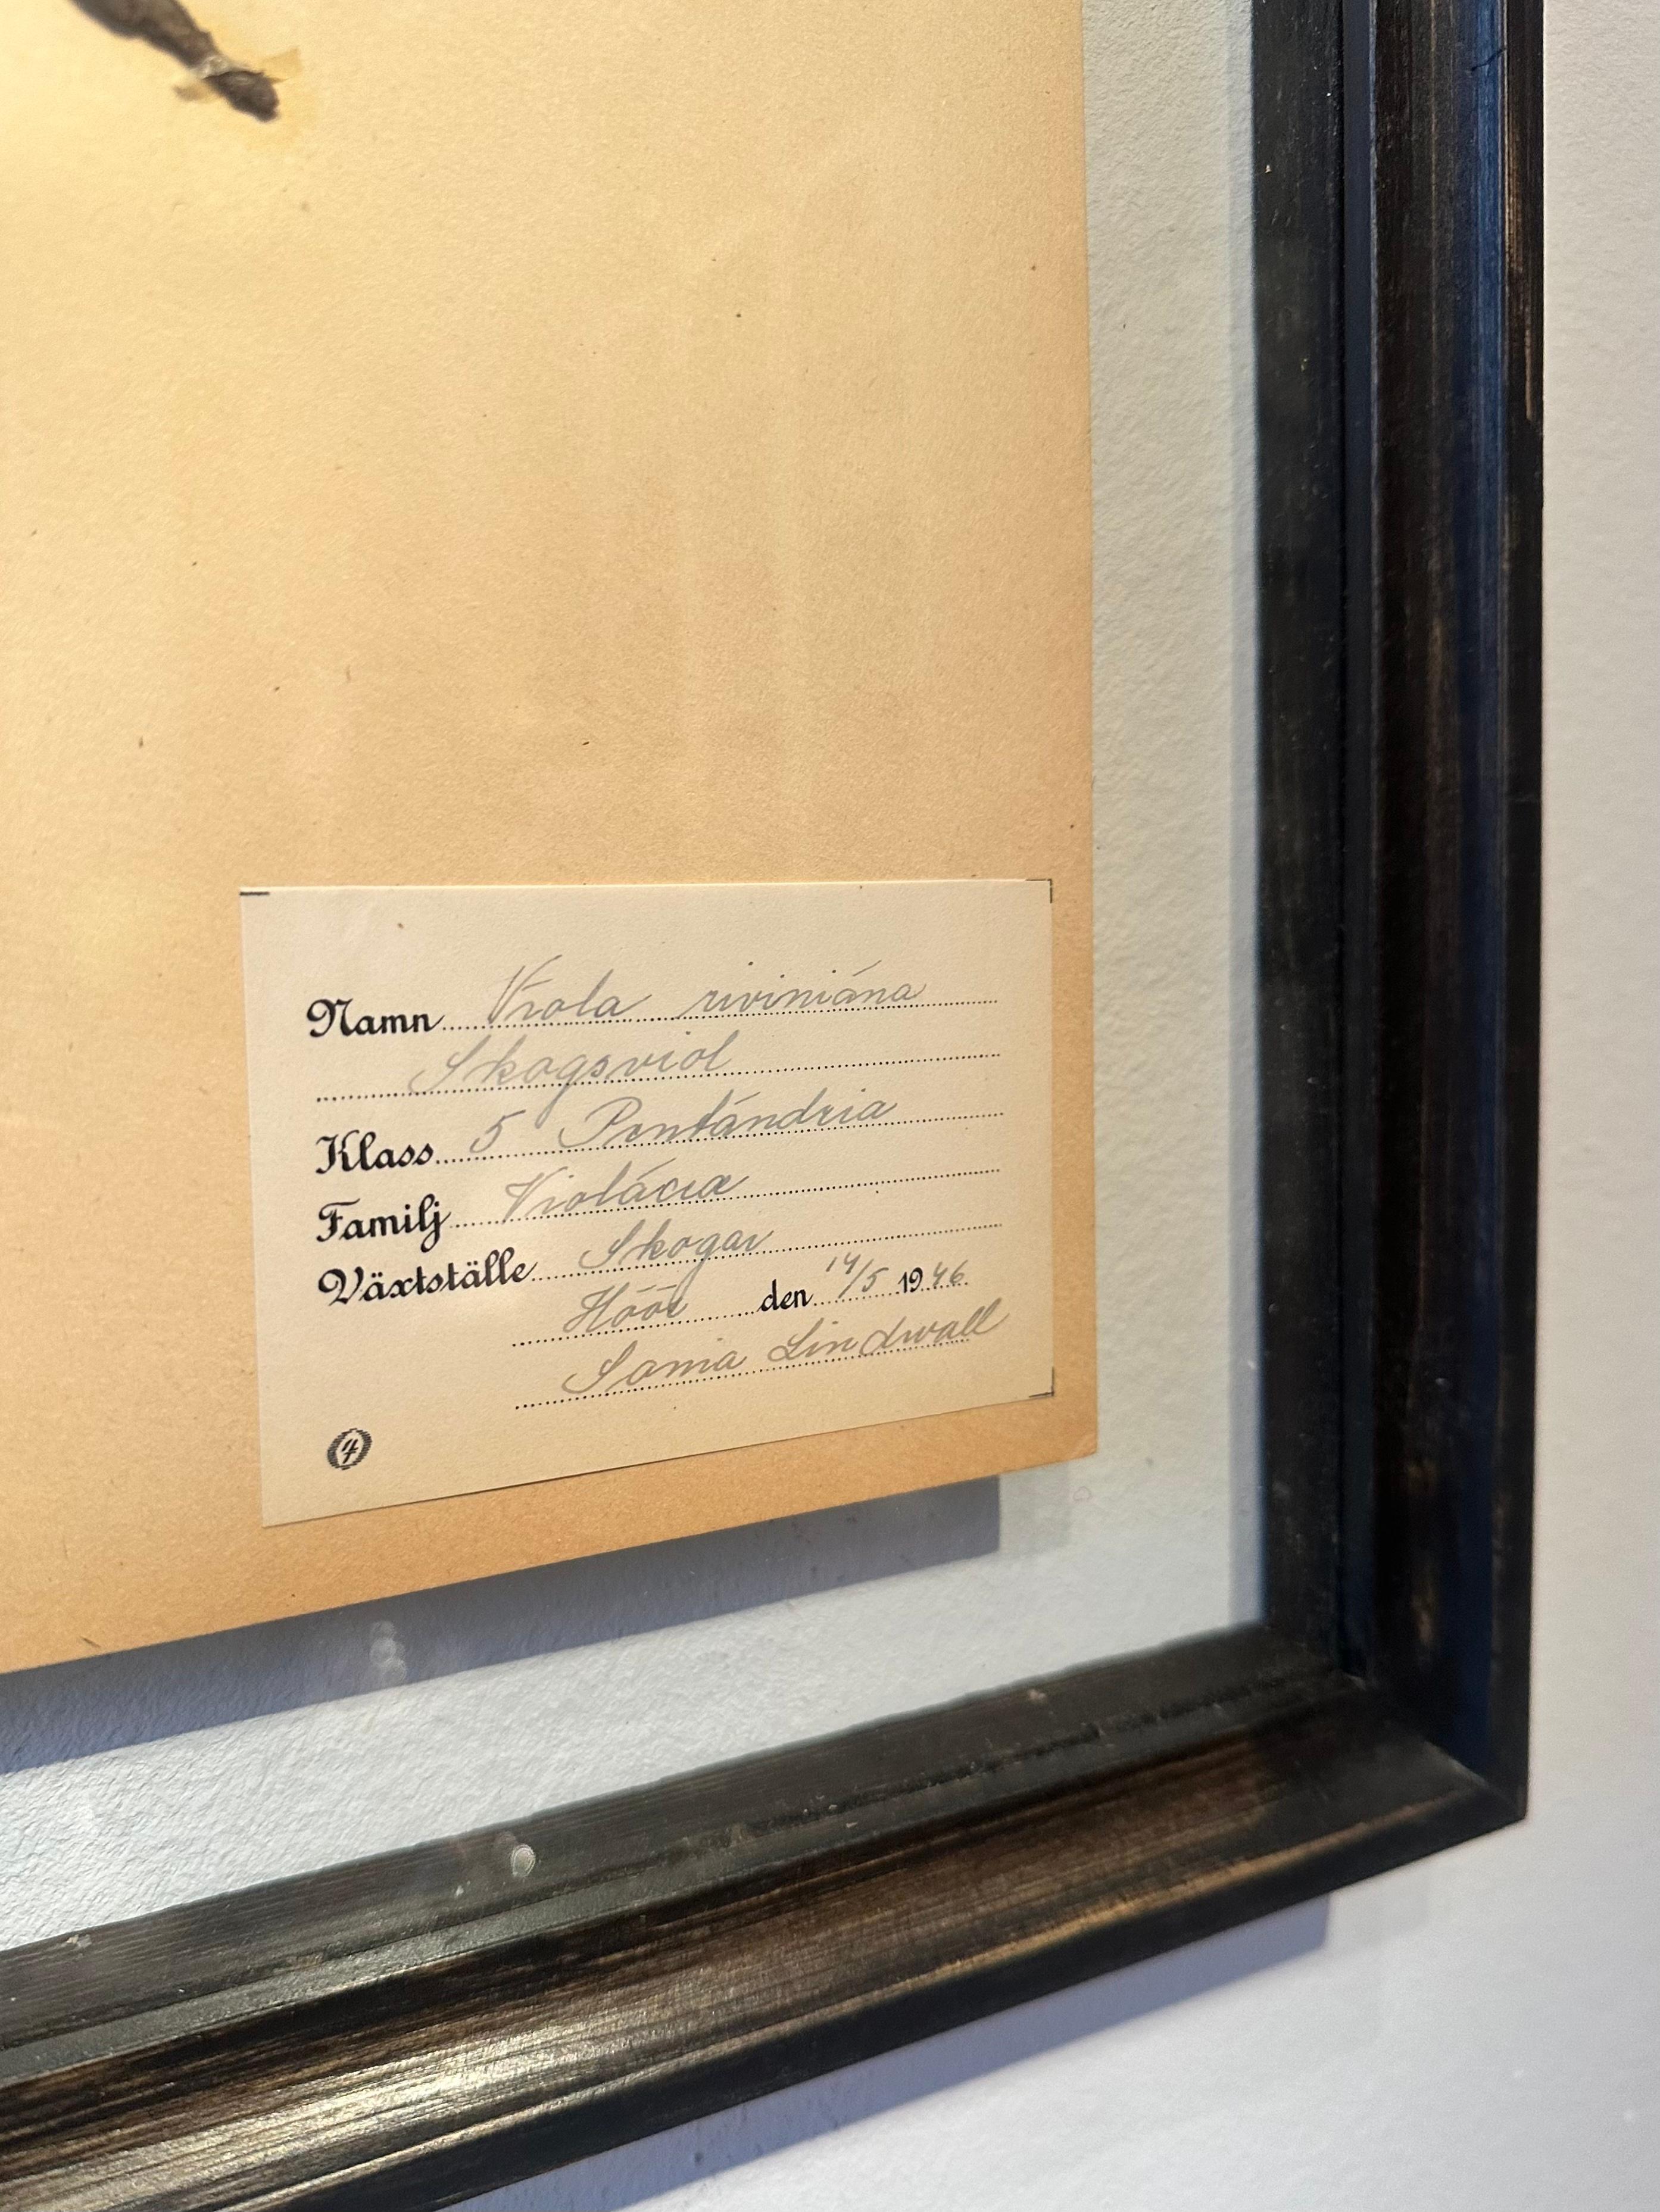 Namn Viola riviniána
Skogsviol
Klass 5 Pentándria
Familj Violácea
Växtställe Skogar
Höör den 14/5 1946
Sonia Lindwall
4